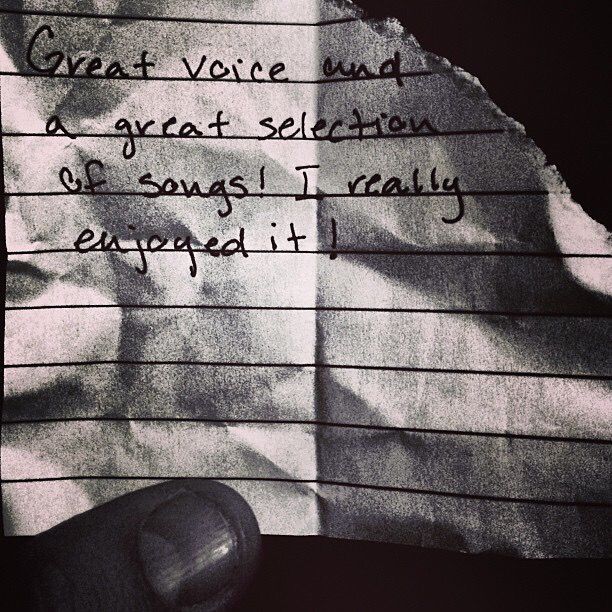 Great voice and
a great selection
of songs! I really
enjoyed it!